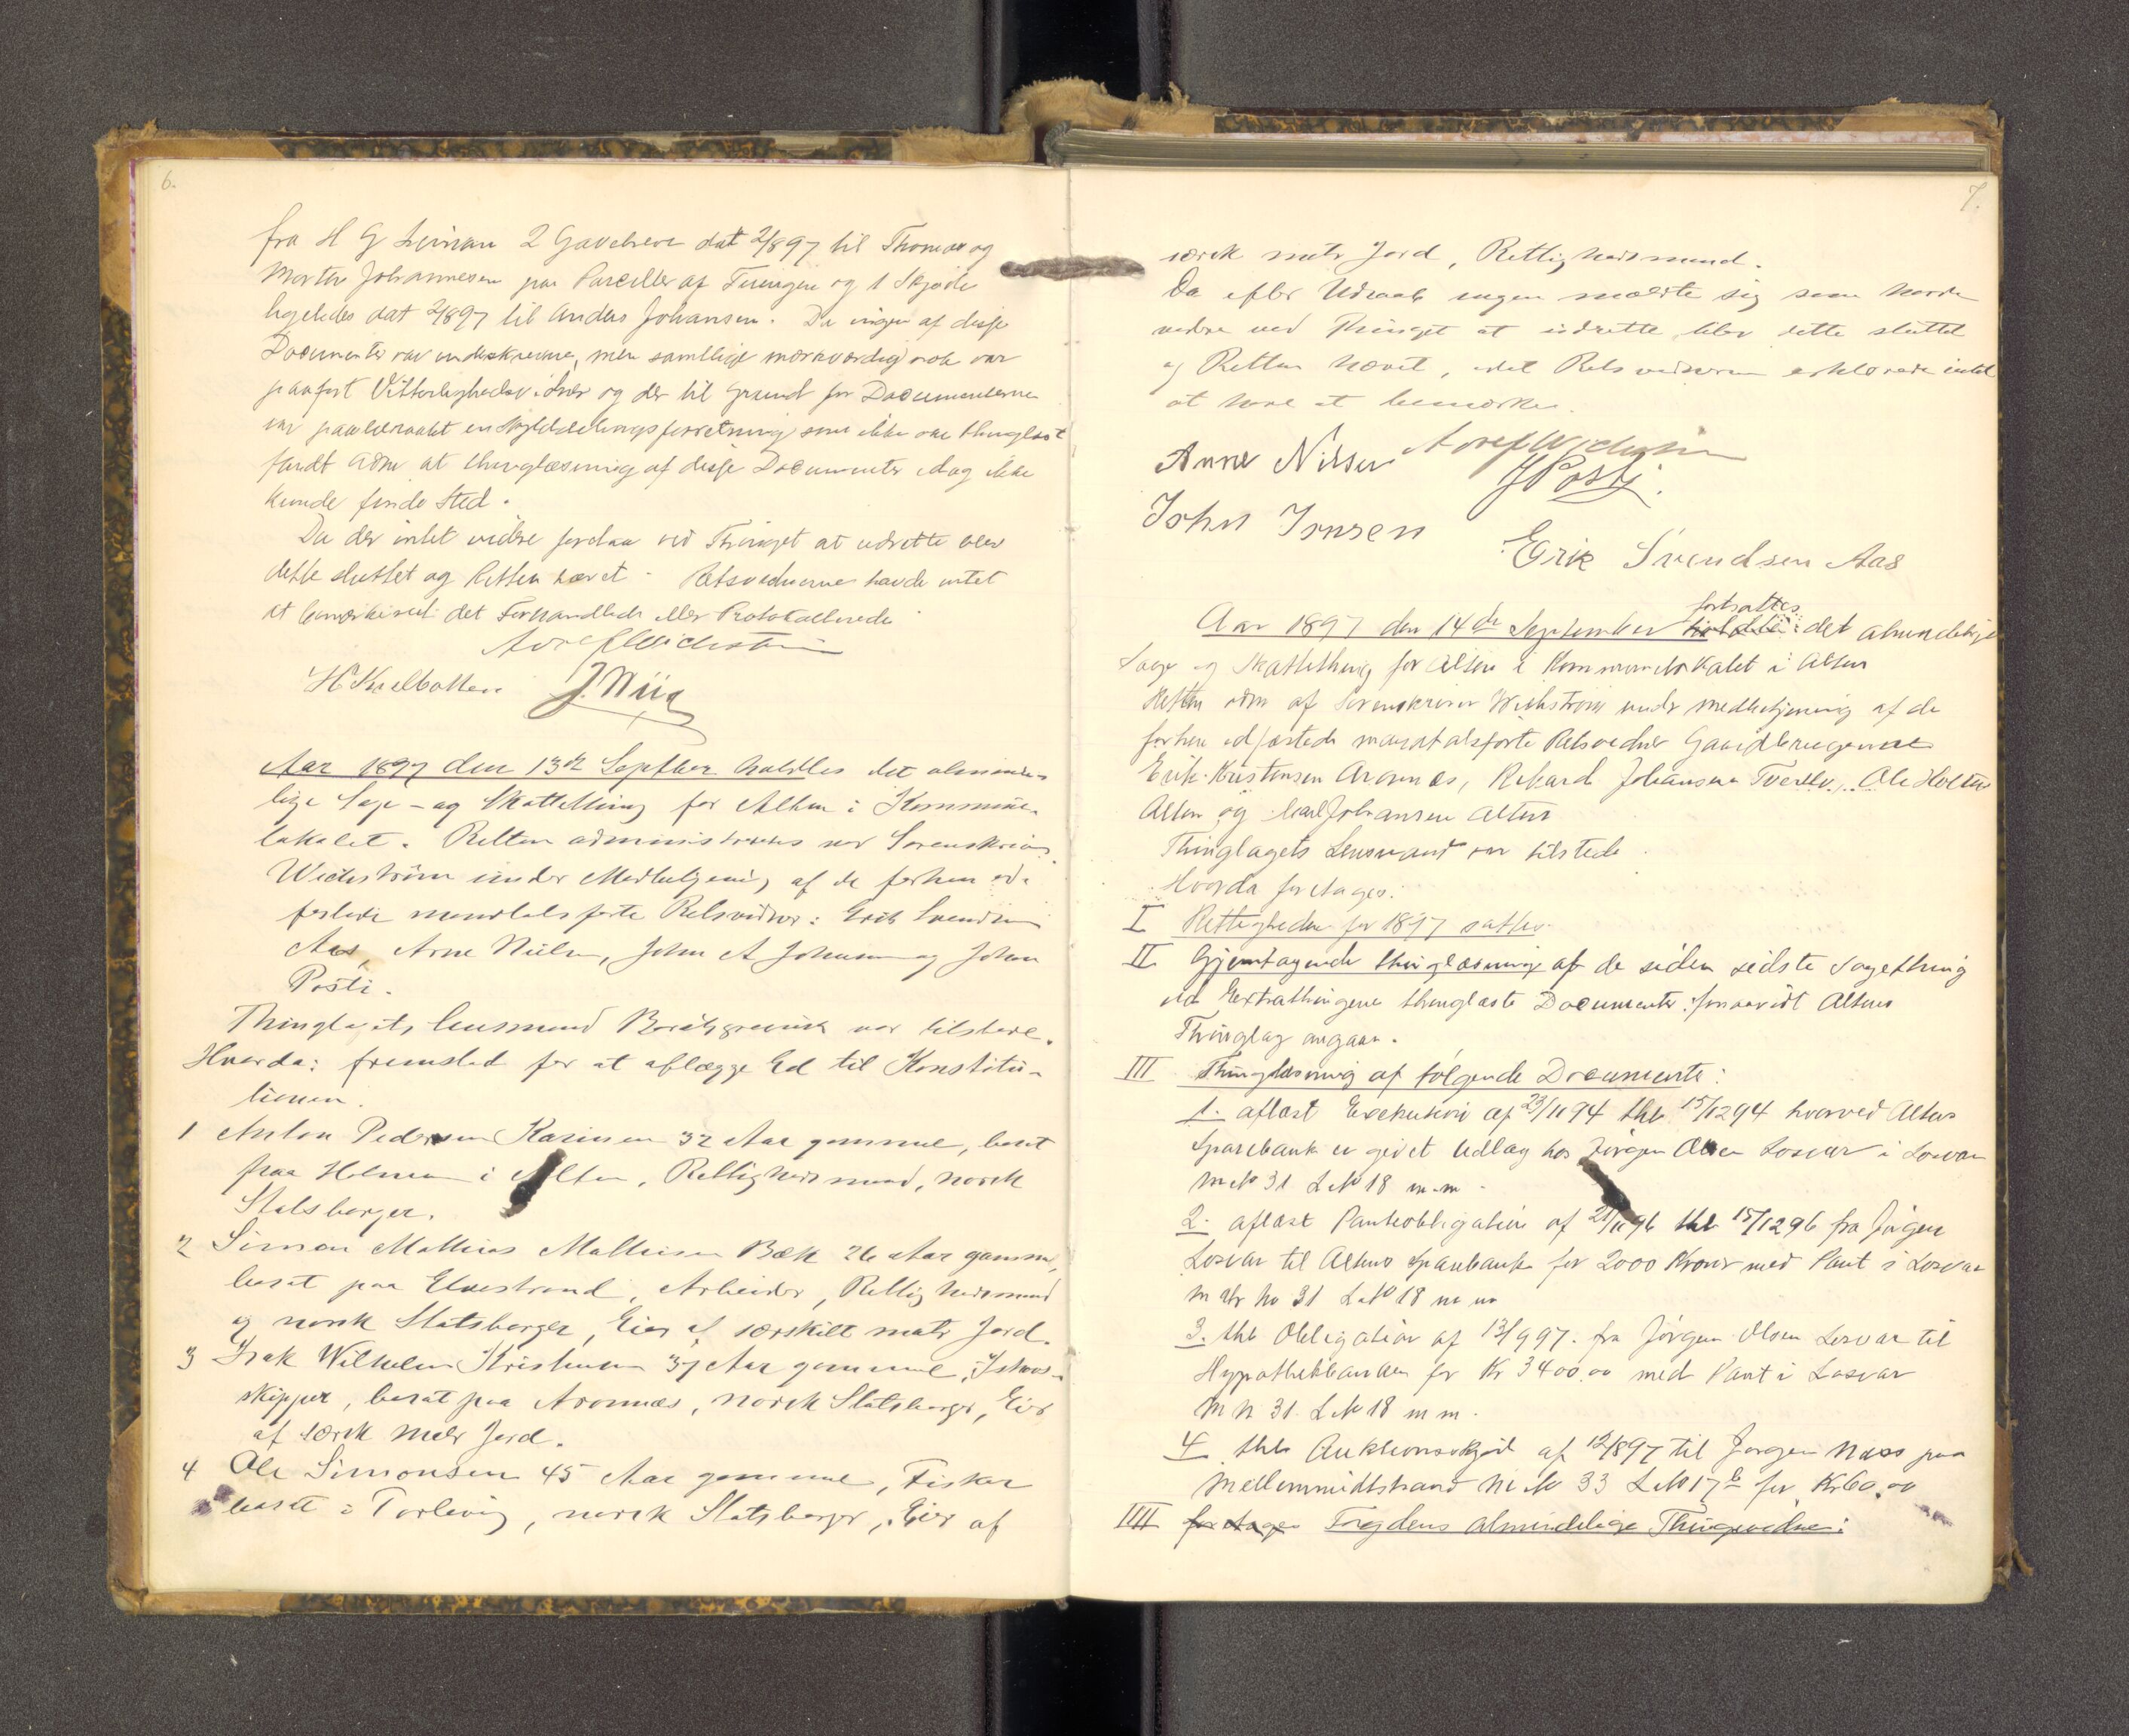 6.
fra H G 2 Gavebreve dat 2/897 til Thomas og
Morten Johannesen paa Parceller af og 1 Skjøde
ligeledes dat 2/897 til Anders Johansen. Da ingen af disse
Documenter var underskrevne, men samtlige mærkværdig nok var
paaført Vitterlighedsvidner og der til Grund for Documenterne
var paaberaabt en Skylddelingsforretning som ikke var thinglæst
fandt Adm at thinglæsning af disse Documenter idag ikke
kunde finde Sted.
Da der intet videre forelaa ved Thinget at udrette blev
dette sluttet og Retten hævet. Retsvidnerne havde intet
at bemærke ved det Forhandlede eller Protokollerede
Wichstrøm
J. Wiig
Aar 1897 den 13de Septbr holdtes det alminde-
lige Sage- og Skattething for Alten i Kommune-
lokalet. Retten administreres ved Sorenskriver
Wichstrøm under Medbetjening af de forhen ed-
fæstede mandtalsførte Retsvidner: Erik Svendsen
Aas, Arne Nielsen, John A Johnsen og Johan
Posti.
Thinglagets Lensmand var tilstede.
Hvorda: fremstod for at aflægge Ed til Konstitu-
tionen.
1 Anton Pedersen 32 Aar gammel, bosat
paa Holmen i Alten, Rettighedsmand, norsk
Statsborger.
2 Simon Mathias Mathisen Bæk 26 Aar gammel,
bosat paa Elvestrand, Arbeider, Rettighedsmand
og norsk Statsborger, Eier af særskilt matr Jord.
3 Isak Wilhelm Kristensen 37 Aar gammel, Ishavs-
skipper, bosat paa Aronnæs, norsk Statsborger, Eier
af særsk matr Jord.
4 Ole Simonsen 45 Aar gammel, Fisker
bosat i , norsk Statsborger, Eier af
7.
særsk matr Jord, Rettighedsmand.
Da efter Udraab ingen meldte sig som havde
videre ved Thinget at udrette blev dette sluttet
og Retten hævet, idet Retsvidnerne erklærede intet
at have at bemærke.
Arne Nilsen Wichstrøm
J Posti.
John Jonsen
Erik Svendsen Aas
fortsattes
Aar 1897 den 14de September holdtes det almindelige
Sage og Skattething for Alten i Kommunelokalet i Alten
Retten adm af Sorenskriver Wichstrøm under medbetjening af de
forhen edfæstede mandtalsførte Retsvidner Gaardbrugerne
Erik Kristensen Aronnæs, Rikard Johansen Tverelv, Ole
Alten og Carl Johansen Alten
Thinglagets Lensmand var tilstede.
Hvorda foretages:
I Rettigheden for 1897 sattes.
II Gjentagende thinglæsning af de siden sidste Sagething
Extrathingene thinglæste Documenter forsaavidt Altens
Thinglag angaar.
III Thinglæsning af følgende Documenter:
1. aflæst Exekution af 23/1194 thl 15/1294 hvorved Altens
Sparebank er givet Udlag hos Jørgen Olsen Losvar i Losvar
M No 31 L No 18 m.m.
2. aflæst Panteobligation af 21/1196 thl 15/1296 fra Jørgen
Losvar til Altens Sparebank for 2000 Kroner med Pant i Losvar
Matr No 31 L No 18 m m
3. thl Obligation af 13/997. fra Jørgen Olsen Losvar til
Hypothekbanken for Kr 3400.00 med Pant i Losvar
M N 31. L No 18 m m.
4 thl Auktionsskjøde af 12/897 til Jørgen Næss paa
M No 33 L No 17 b for Kr 60.00
IIII foretages Fogdens almindelige Thingsvidne: